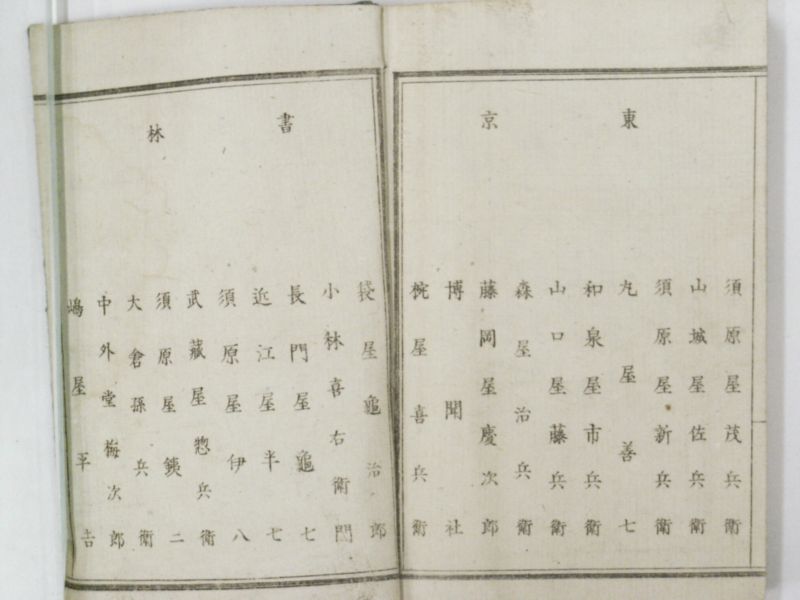 東京
須原屋茂兵衛
山城屋佐兵衛
須原屋新兵衛
丸屋善七
和泉屋市兵衛
山口屋藤兵衛
森屋治兵衛
藤岡屋慶次郎
博聞社
椀屋喜兵衛
書林
袋屋亀治郎
小林喜右衛門
長門屋亀七
近江屋半七
須原屋伊八
武藏屋惣兵衛
須原屋鉄二
大倉孫兵衛
中外堂梅次郎
嶋屋平吉